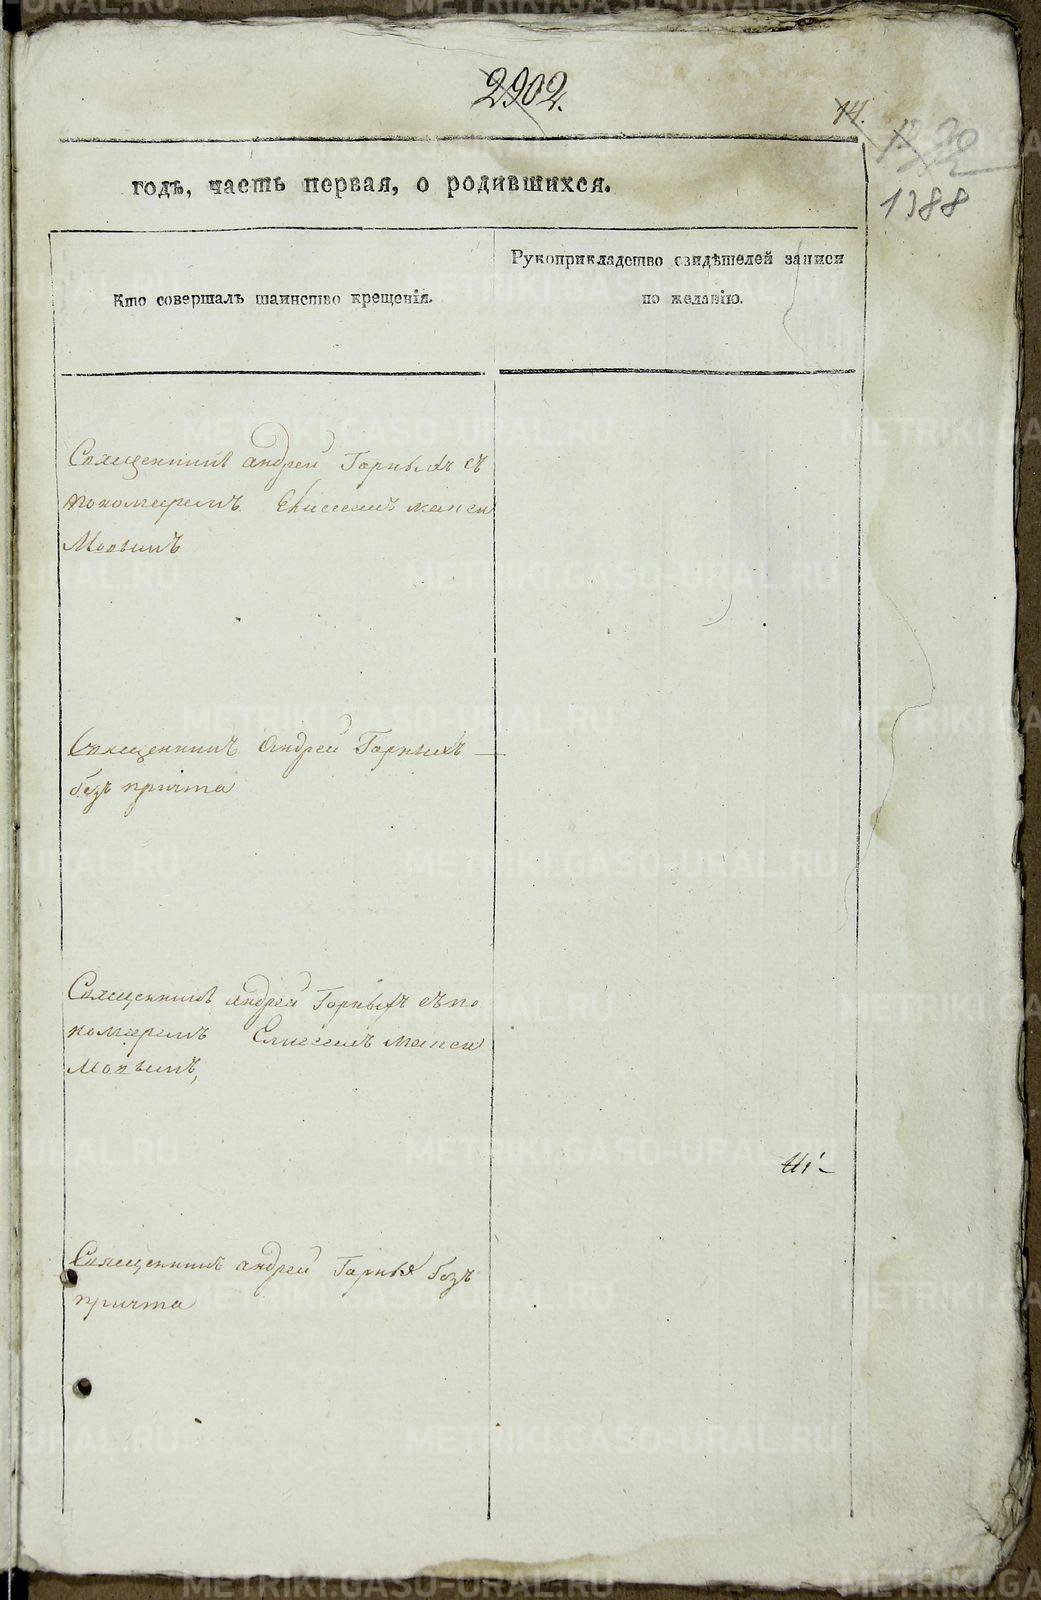 2902.
14.
1388
годъ, часть первая, о родившихся.
Кто совершалъ таинство крещенія.
Рукоприкладство свидѣтелей записи
по желанію.
Священникъ Андрей Горныхъ съ
пономаремъ Елисеемъ Макси
Моовымъ
Священникъ Андрей Горныхъ –
безъ причта
Священникъ Андрей Горныхъ съ по
номаремъ Елисеемъ Макси
Моовымъ,
Священникъ Андрей Горныхъ безъ
причта
METRIKI.GASO-URAL.RU